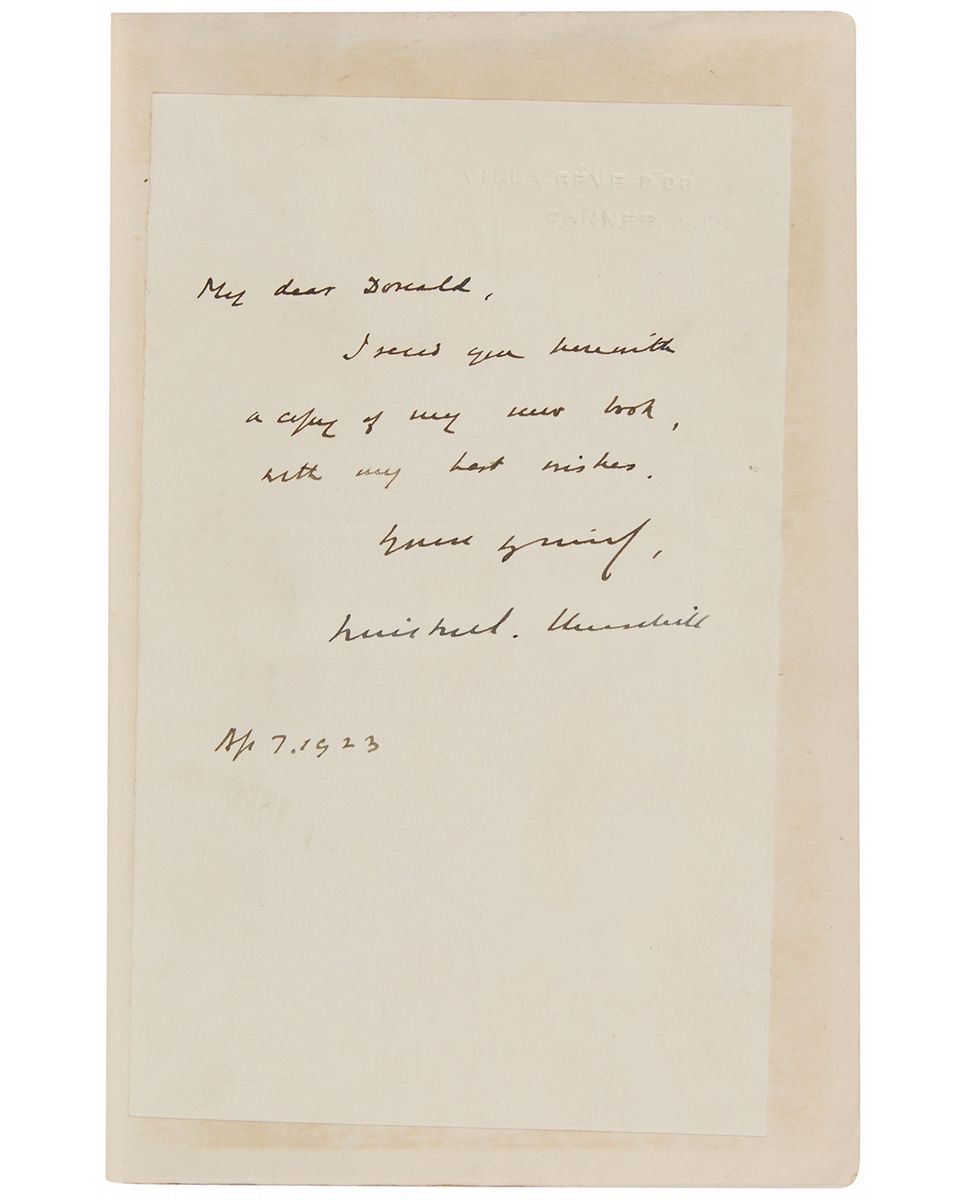 VILLA RÊVE D'OR
CANNES A.M.
My dear Donald,
I send you herewith
a copy of my new book,
with my best wishes.
Yours
Winston S. Churchill
Ap 7. 1923